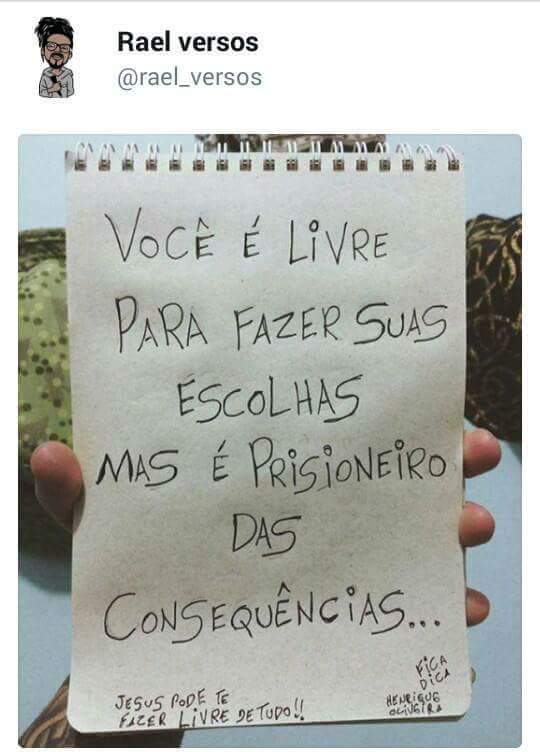 Rael versos
@rael_versos
VOCÊ É LIVRE
PARA FAZER SUAS
ESCOLHAS
MAS É PRISIONEIRO
DAS
CONSEQUÊNCIAS...
FICA
DICA
JESUS PODE TE
FAZER LIVRE DE TUDO!!
HENRIQUE
OLIVEIRA